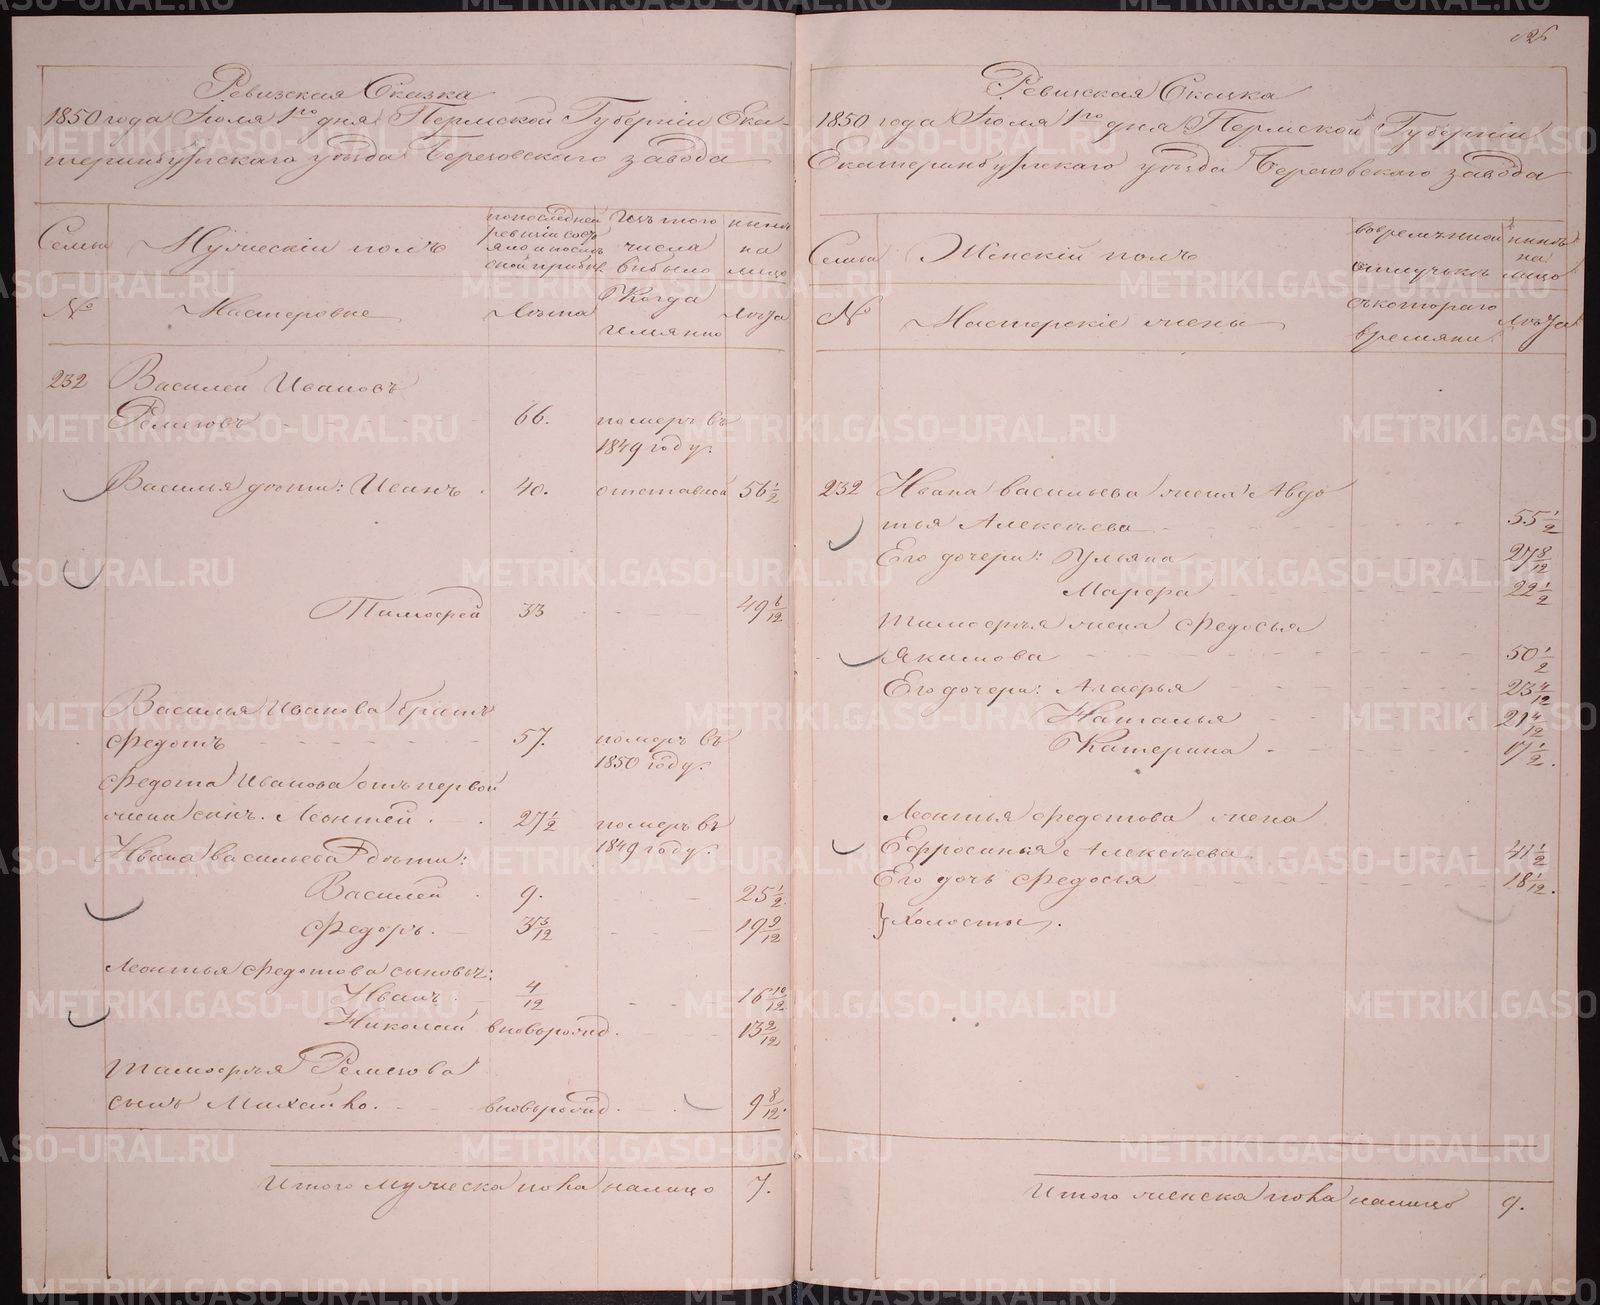 Ревизская Сказка
1850 года Июля 1го дня Пермской Губернiи Ека-
теринбургскаго уѣзда Березовскаго завода
Семьи
Мужескiй полъ
по последней
ревизiи состо
яло и после
оной прибыло
Изъ того
числа
выбыло
нынѣ
на
лицо
№
Мастеровые
Лѣта
Когда
имянно
Лѣта
232 Василей Ивановъ
Ремезовъ 66. померъ въ
1849 году.
Василья дѣти: Иванъ 40. отставной 56 1/2
Тимофей 33 49 6/12
Василья Иванова братъ
Федотъ 57. померъ въ
1850 году.
Федота Иванова отъ первой
жены сынъ. Леонтей 27 1/2 померъ въ
1849 году.
Ивана Васильева дѣти:
Василей 9. 25 1/2
Федоръ. 3 3/12 19 9/12
Леонтья Федотова сыновья:
Иванъ 4/12 16 10/12
Николай вновьрожд. 13 2/12
Тимофея Ремезова
сынъ Михайло. вновьрожд. 9 8/12.
Итого мужеска пола налицо 7.
126
Ревизская Сказка
1850 года Июля 1го дня Пермской Губернiи
Екатеринбургскаго уѣзда Березовскаго завода
Семьи
Женскiй полъ
во временной
отлучкѣ
нынѣ
на
лицо
№
Мастерскiе жены
съ котораго
времяни.
Лѣта
232 Ивана Васильева жена Авдо
тья Алексѣева 55 1/2
Его дочери: Ульяна 27 8/12
Марфа 22 1/2
Тимофея жена Федосья
Якимова 50 1/2
Его дочери: Агафья 23 4/12
Наталья 21 4/12
Катерина 17 1/2.
Леонтья Федотова жена
Ефросинья Алексѣева 41 1/2
Его дочь Федосья 18 1/12.
} Холосты.
Итого женска пола налицо 9.
METRIKI.GASO-URAL.RU